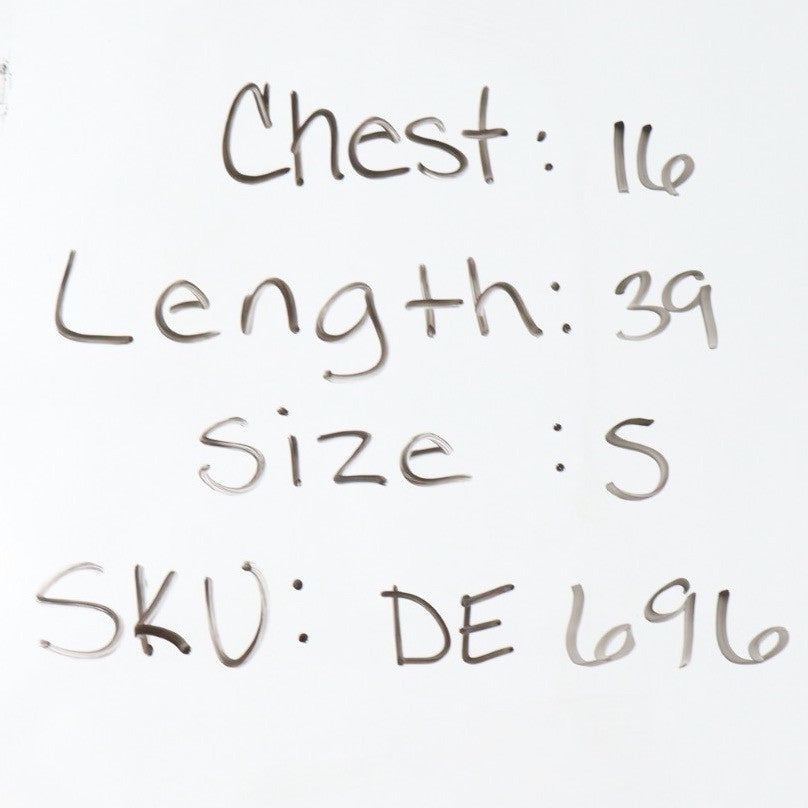 Chest: 16
Length: 39
Size: S
SKU: DE 696